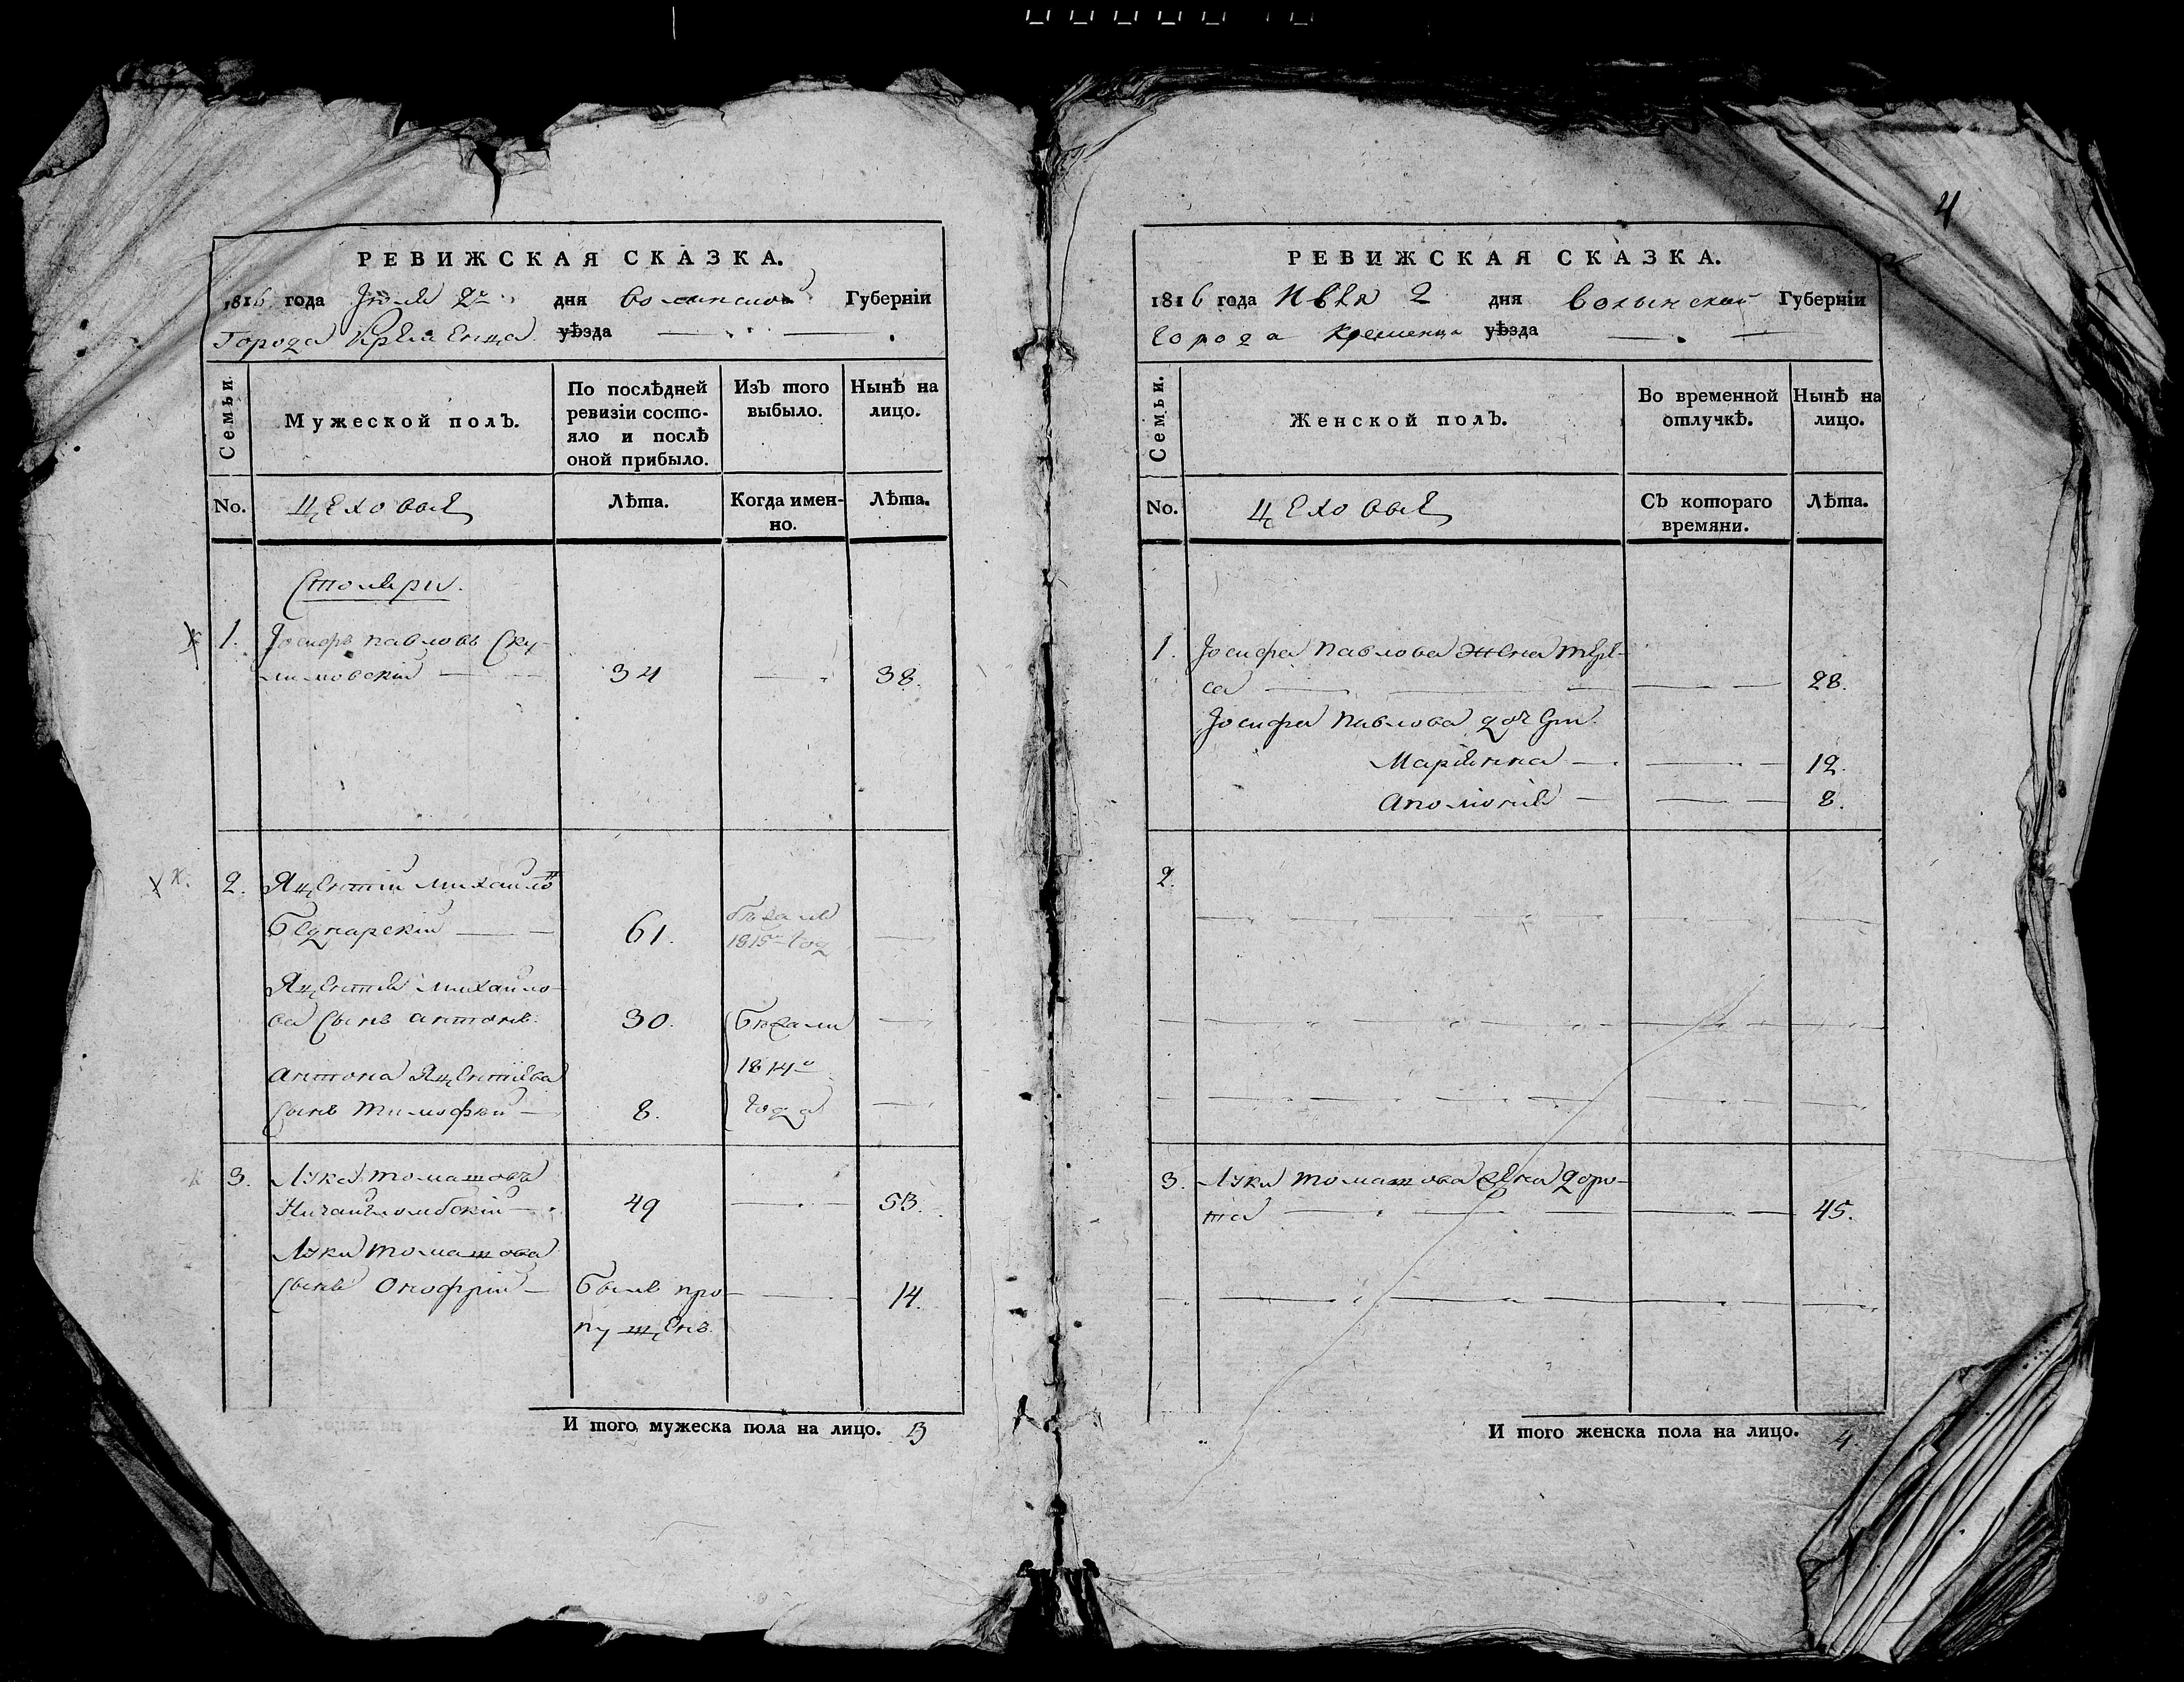 4
РЕВИЖСКАЯ СКАЗКА.
1816 года Іюля 2го дня Волынской Губерніи
Города Кременца уѣзда
Семьи.
Мужеской полЪ.
По послѣдней ревизіи состояло и послѣ оной прибыло.
ИзЪ того выбыло.
Нынѣ на лицо.
No.
Цеховые
Лѣта.
Когда именно.
Лѣта.
Столяри.
1. Іосифъ Павловъ Ску-
лимовскій 34 38.
2. Яцентій Михайло
Беднарскій 61.
1815 год
Яцентія Михайло-
ва сынъ Антонъ. 30. Бѣжали
Антона Яцентіева 1814го
сынъ Тимофей 8. года
3. Лука Томашовъ
49 53.
Луки Томашова
сынъ Онофрій Былъ про- 14.
пущенъ.
И того мужеска пола на лицо. 3
РЕВИЖСКАЯ СКАЗКА.
1816 года Июля 2 дня Волынской Губерніи
Города Кременца уѣзда
Семьи.
Женской полЪ.
Во временной отлучкѣ.
Нынѣ на лицо.
No.
Цеховые
СЪ котораго времяни.
Лѣта.
1. Іосифа Павлова жена Тере-
са 28.
Іосифа Павлова дочери
Маріянна 12.
Аполонія 8.
2.
3. Луки Томашова жена Доро-
та 45.
И того женска пола на лицо. 4.